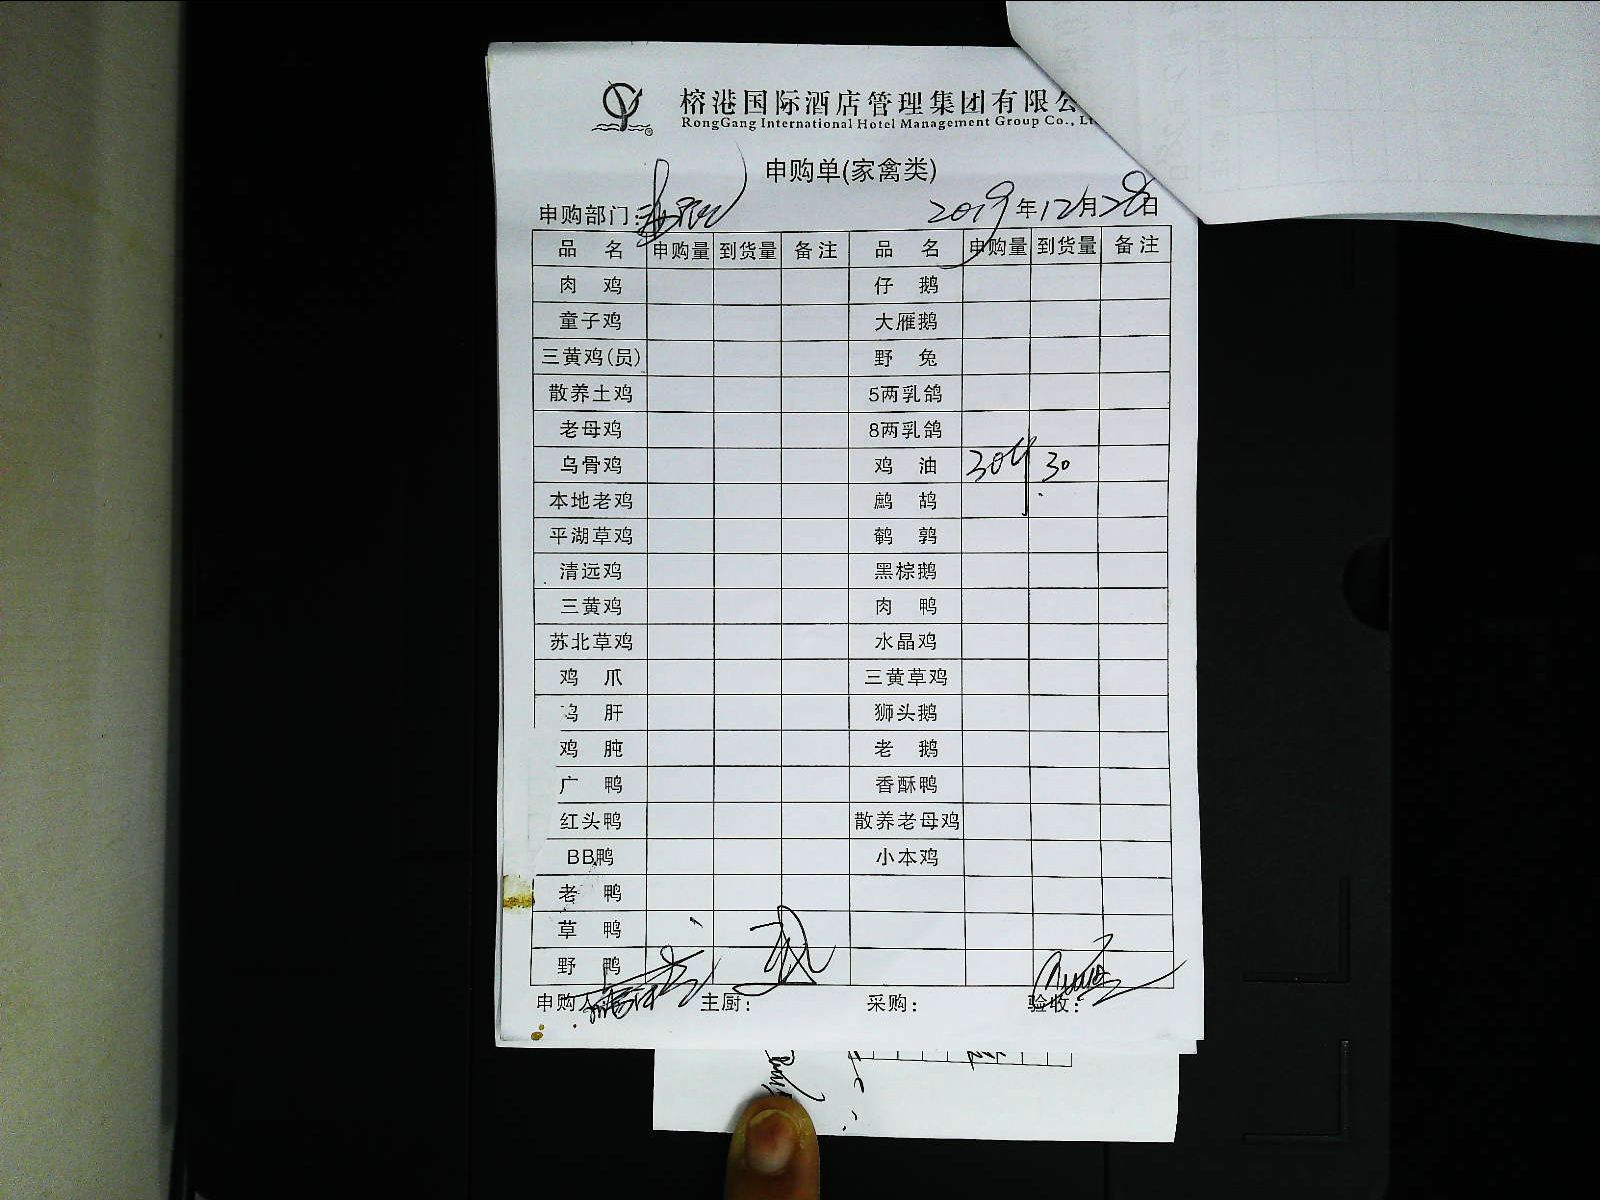 榕港国际酒店管理集团有限公
RongGang International Hotel Management Group Co., Lt
申购单(家禽类)
申购部门: 2019年12月28日
品 名 申购量 到货量 备注 品 名 申购量 到货量 备注
肉 鸡 仔 鹅
童子鸡 大雁鹅
三黄鸡(员) 野 兔
散养土鸡 5两乳鸽
老母鸡 8两乳鸽
乌骨鸡 鸡 油 30斤 30
本地老鸡 鹧 鸪
平湖草鸡 鹌 鹑
清远鸡 黑棕鹅
三黄鸡 肉 鸭
苏北草鸡 水晶鸡
鸡 爪 三黄草鸡
鸡 肝 狮头鹅
鸡 肫 老 鹅
广 鸭 香酥鸭
红头鸭 散养老母鸡
BB鸭 小本鸡
老 鸭
草 鸭
野 鸭
申购人: 主厨: 采购: 验收: